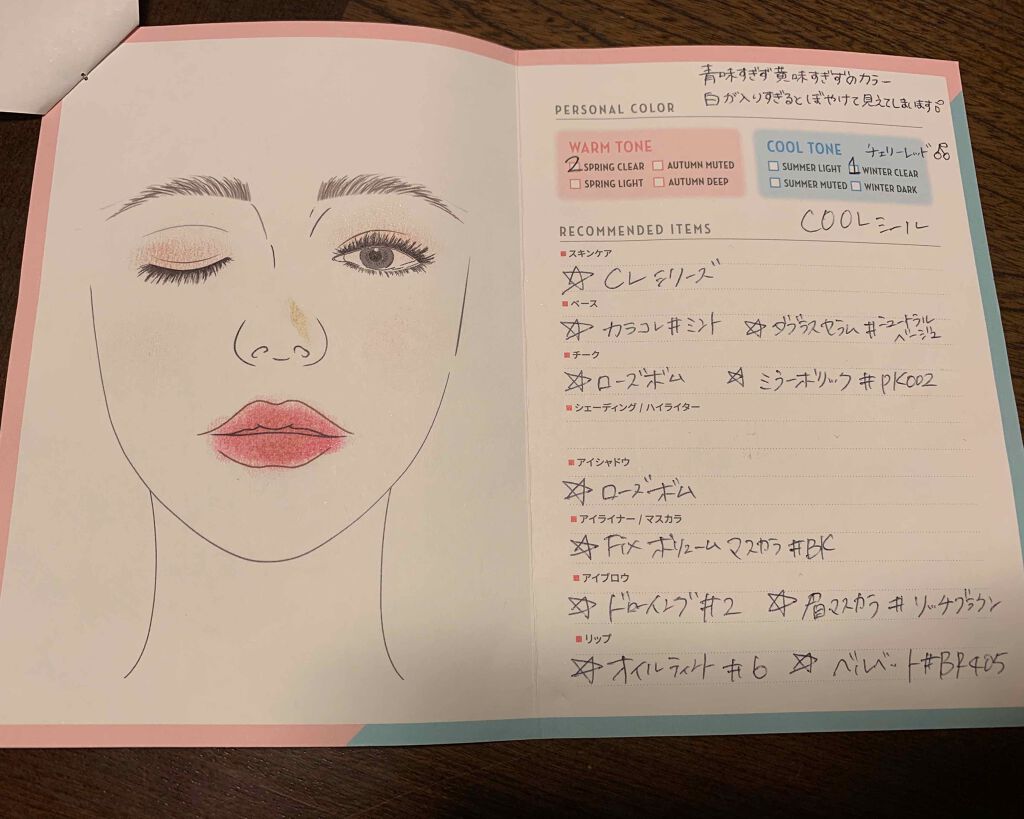 青味すぎず黄味すぎずのカラー
白が入りすぎるとぼやけて見えてしまいます
PERSONAL COLOR
WARM TONE
2 SPRING CLEAR AUTUMN MUTED
SPRING LIGHT AUTUMN DEEP
COOL TONE チェリーレッド
SUMMER LIGHT 1 WINTER CLEAR
SUMMER MUTED WINTER DARK
RECOMMENDED ITEMS COOLシール
スキンケア
☆ CLシリーズ
ベース
☆ カラコレ#ミント ☆ ダブラスセラム#ニュートラルベージュ
チーク
☆ ローズボム ☆ ミラーホリック#PK002
シェーディング / ハイライター
アイシャドウ
☆ ローズボム
アイライナー / マスカラ
☆ Fix ボリューム マスカラ #BK
アイブロウ
☆ ドローイング#2 ☆ 眉マスカラ # リッチブラウン
リップ
☆ オイルティント #6 ☆ ベルベット#BR405